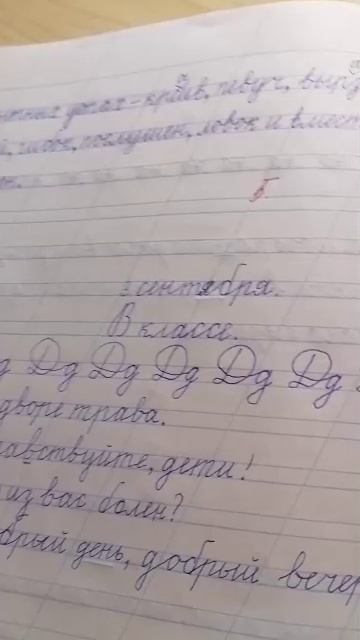 красив, певуч,
гибок, послушен, ловок и вмест
Б.
сентября.
В классе.
д Дд Дд Дд Дд Дд
дворе трава.
авствуйте, дети!
из вас болен?
брый день, добрый вечер